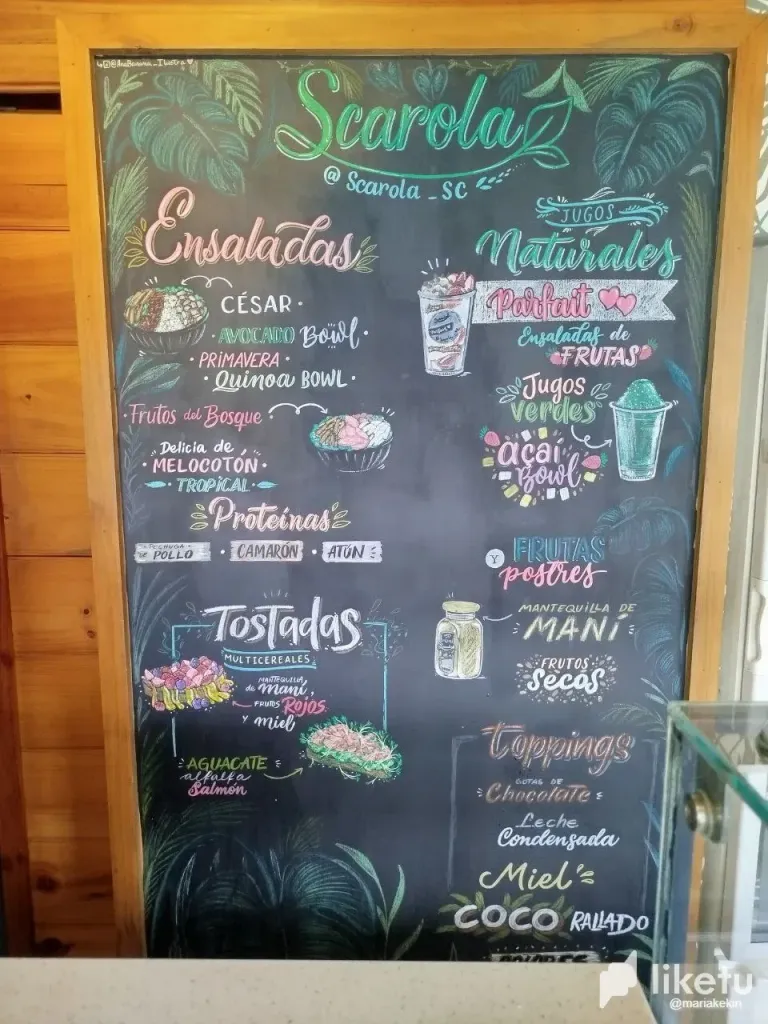 Scarola
@ Scarola _ SC
Ensaladas
CÉSAR
AVOCADO Bowl
PRIMAVERA
Quinoa BOWL
Frutos del Bosque
Delicia de
MELOCOTÓN
TROPICAL
Proteínas
PECHUGA
DE POLLO · CAMARÓN · ATÚN
TOSTADAS
MULTICEREALES
MANTEQUILLA
de Maní,
FRUTOS Rojos
y miel
AGUACATE
alfalfa
Salmón
JUGOS
Naturales
Parfait
Ensaladas de
FRUTAS
Jugos
verdes
açaí
Bowl
Y FRUTAS
postres
MANTEQUILLA DE
MANÍ
FRUTOS
Secos
toppings
GOTAS DE
Chocolate
Leche
Condensada
Miel
COCO RALLADO
likefu
@mariakekin